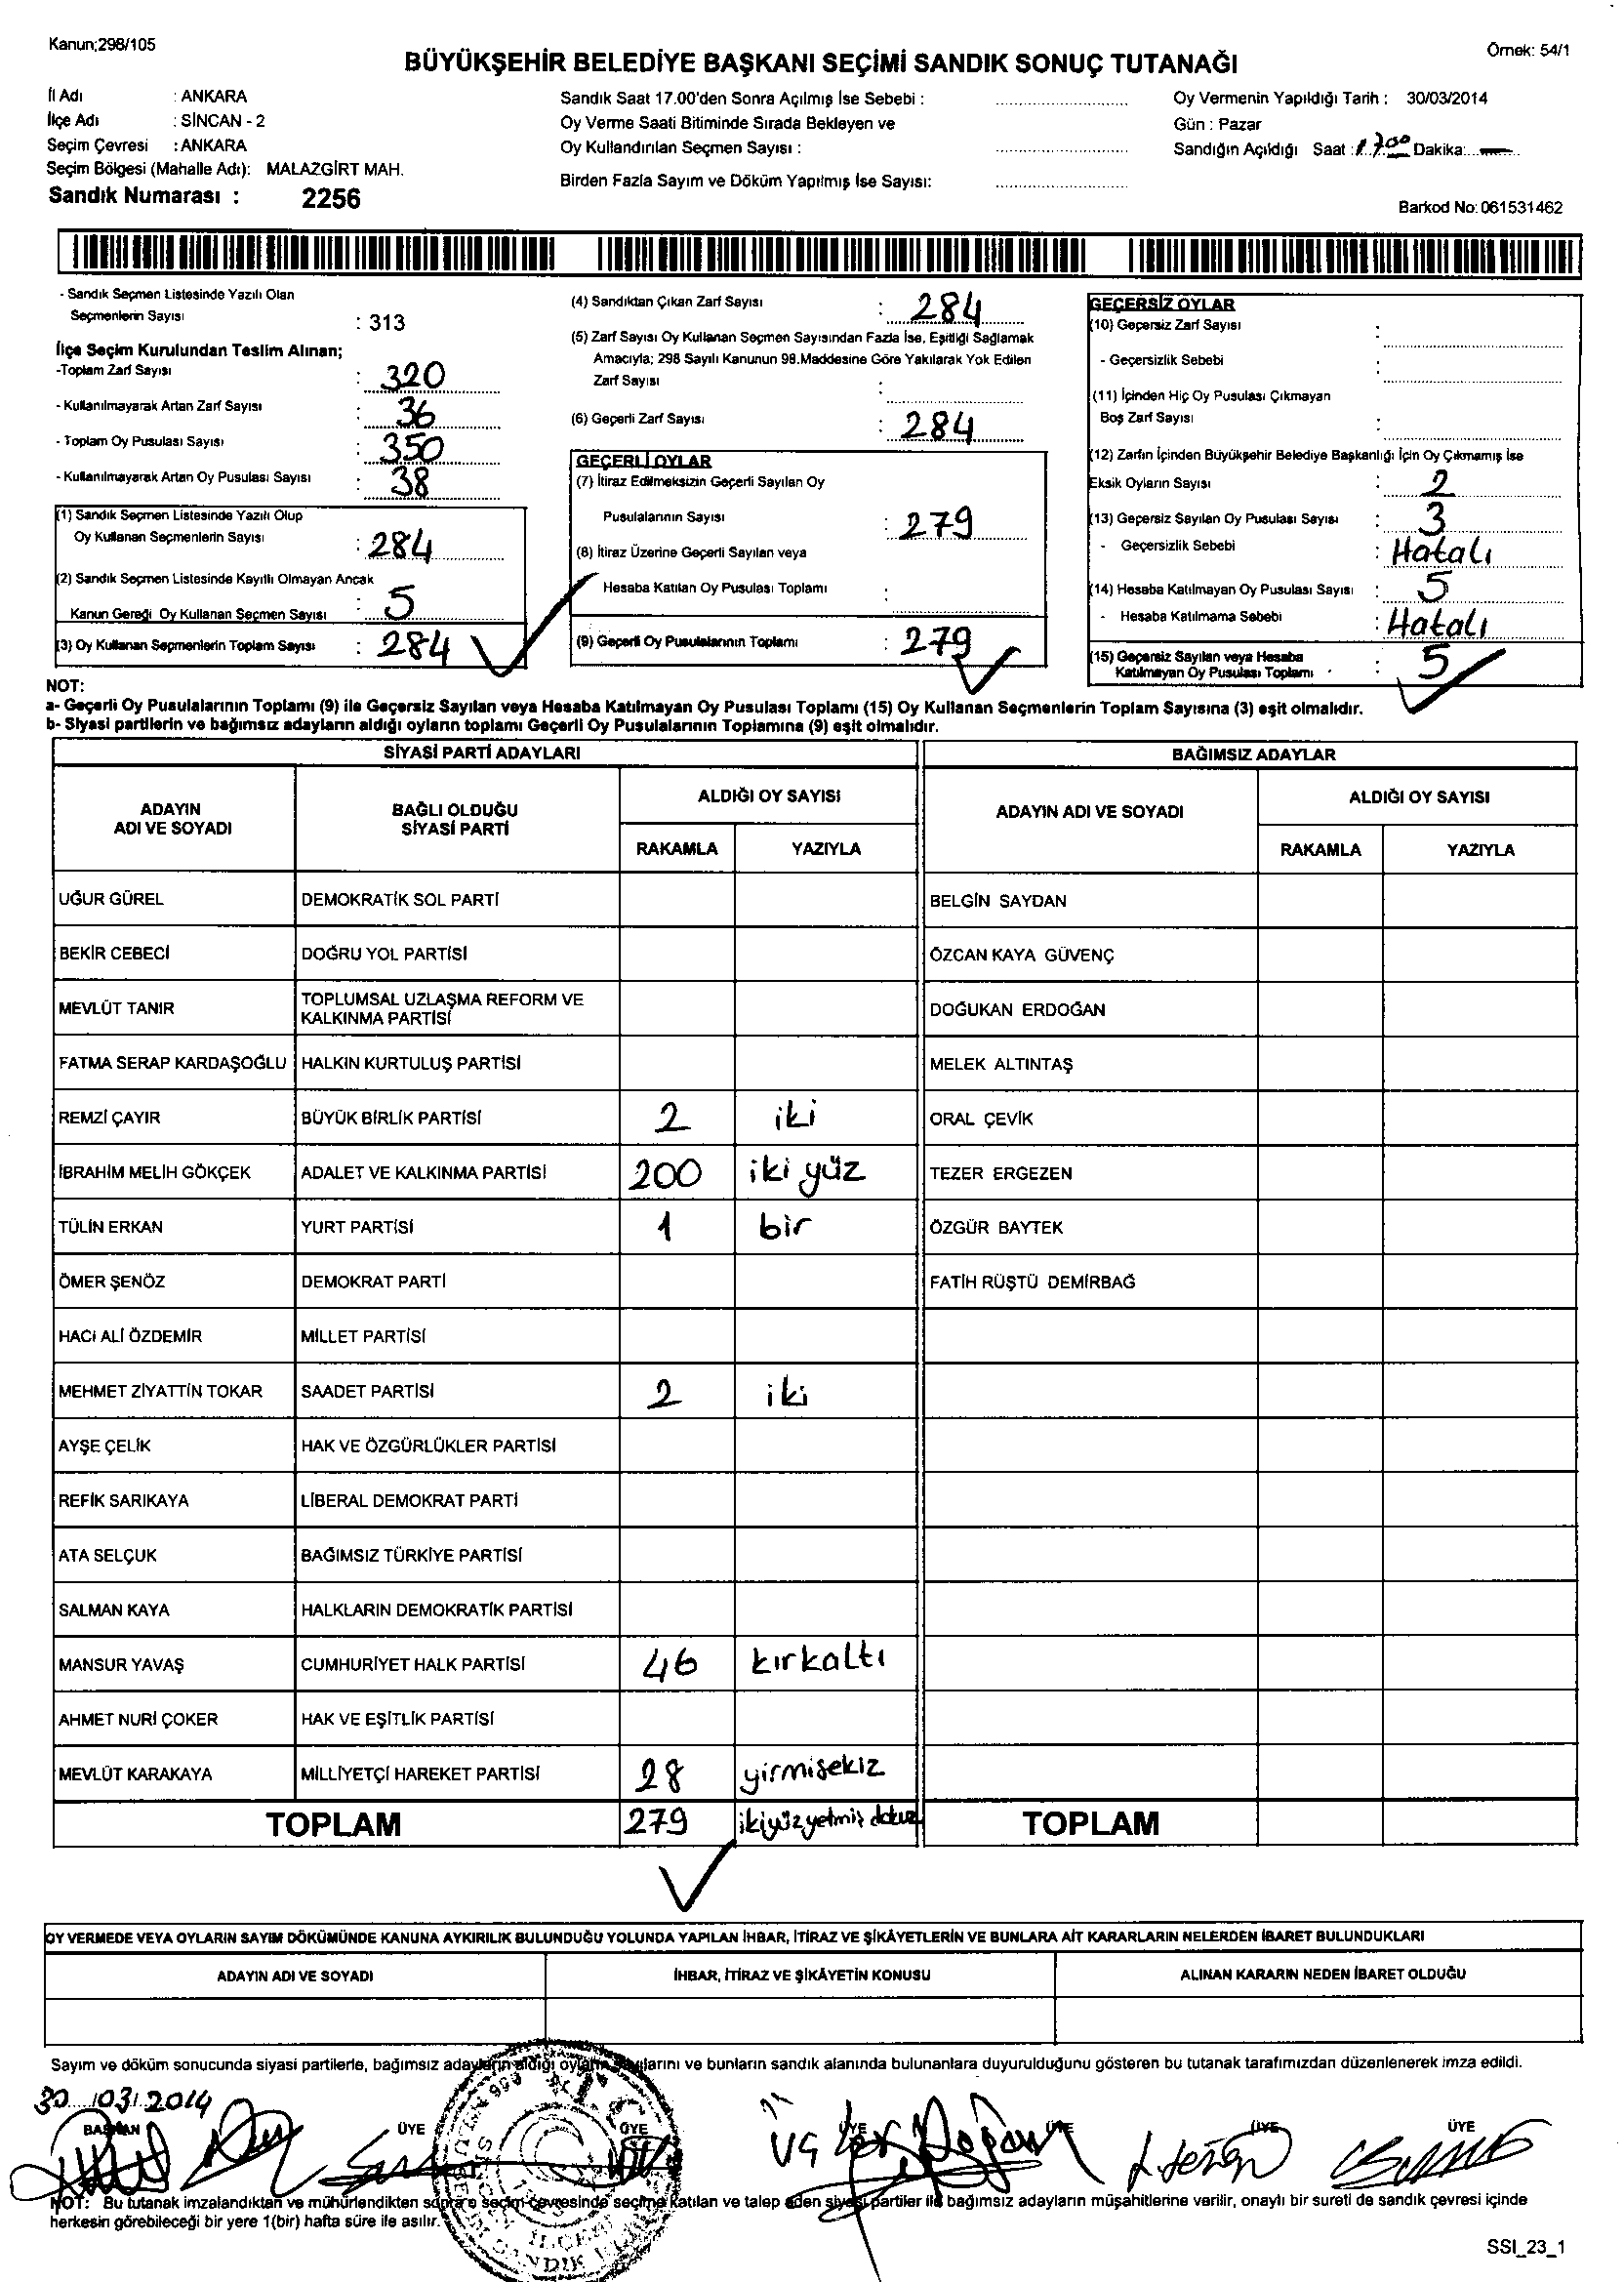 Kanun;298/105
Örnek: 54/1
BÜYÜKŞEHİR BELEDİYE BAŞKANI SEÇİMİ SANDIK SONUÇ TUTANAĞI
İl Adı : ANKARA
İlçe Adı : SİNCAN - 2
Seçim Çevresi : ANKARA
Seçim Bölgesi (Mahalle Adı): MALAZGİRT MAH.
Sandık Numarası : 2256
Sandık Saat 17.00'den Sonra Açılmış İse Sebebi :
Oy Verme Saati Bitiminde Sırada Bekleyen ve
Oy Kullandırılan Seçmen Sayısı :
Birden Fazla Sayım ve Döküm Yapılmış İse Sayısı:
Oy Vermenin Yapıldığı Tarih : 30/03/2014
Gün : Pazar
Sandığın Açıldığı Saat : 17.00 Dakika: —
Barkod No: 061531462
- Sandık Seçmen Listesinde Yazılı Olan
Seçmenlerin Sayısı : 313
İlçe Seçim Kurulundan Teslim Alınan;
-Toplam Zarf Sayısı : 320
- Kullanılmayarak Artan Zarf Sayısı : 36
- Toplam Oy Pusulası Sayısı : 350
- Kullanılmayarak Artan Oy Pusulası Sayısı : 38
(1) Sandık Seçmen Listesinde Yazılı Olup
Oy Kullanan Seçmenlerin Sayısı : 284
(2) Sandık Seçmen Listesinde Kayıtlı Olmayan Ancak
Kanun Gereği Oy Kullanan Seçmen Sayısı : 5
(3) Oy Kullanan Seçmenlerin Toplam Sayısı : 284
(4) Sandıktan Çıkan Zarf Sayısı : 284
(5) Zarf Sayısı Oy Kullanan Seçmen Sayısından Fazla İse, Eşitliği Sağlamak
Amacıyla; 298 Sayılı Kanunun 98.Maddesine Göre Yakılarak Yok Edilen
Zarf Sayısı :
(6) Geçerli Zarf Sayısı : 284
GEÇERLİ OYLAR
(7) İtiraz Edilmeksizin Geçerli Sayılan Oy
Pusulalarının Sayısı : 279
(8) İtiraz Üzerine Geçerli Sayılan veya
Hesaba Katılan Oy Pusulası Toplamı :
(9) Geçerli Oy Pusulalarının Toplamı : 279
GEÇERSİZ OYLAR
(10) Geçersiz Zarf Sayısı :
- Geçersizlik Sebebi :
(11) İçinden Hiç Oy Pusulası Çıkmayan
Boş Zarf Sayısı :
(12) Zarfın İçinden Büyükşehir Belediye Başkanlığı İçin Oy Çıkmamış İse
Eksik Oyların Sayısı : 2
(13) Geçersiz Sayılan Oy Pusulası Sayısı : 3
- Geçersizlik Sebebi : Hatalı
(14) Hesaba Katılmayan Oy Pusulası Sayısı : 5
- Hesaba Katılmama Sebebi : Hatalı
(15) Geçersiz Sayılan veya Hesaba
Katılmayan Oy Pusulası Toplamı : 5
NOT:
a- Geçerli Oy Pusulalarının Toplamı (9) ile Geçersiz Sayılan veya Hesaba Katılmayan Oy Pusulası Toplamı (15) Oy Kullanan Seçmenlerin Toplam Sayısına (3) eşit olmalıdır.
b- Siyasi partilerin ve bağımsız adayların aldığı oyların toplamı Geçerli Oy Pusulalarının Toplamına (9) eşit olmalıdır.
SİYASİ PARTİ ADAYLARI BAĞIMSIZ ADAYLAR
ADAYIN ADI VE SOYADI BAĞLI OLDUĞU SİYASİ PARTİ ALDIĞI OY SAYISI ADAYIN ADI VE SOYADI ALDIĞI OY SAYISI
RAKAMLA YAZIYLA RAKAMLA YAZIYLA
UĞUR GÜREL DEMOKRATİK SOL PARTİ BELGİN SAYDAN
BEKİR CEBECİ DOĞRU YOL PARTİSİ ÖZCAN KAYA GÜVENÇ
MEVLÜT TANIR TOPLUMSAL UZLAŞMA REFORM VE KALKINMA PARTİSİ DOĞUKAN ERDOĞAN
FATMA SERAP KARDAŞOĞLU HALKIN KURTULUŞ PARTİSİ MELEK ALTINTAŞ
REMZİ ÇAYIR BÜYÜK BİRLİK PARTİSİ 2 iki ORAL ÇEVİK
İBRAHİM MELİH GÖKÇEK ADALET VE KALKINMA PARTİSİ 200 iki yüz TEZER ERGEZEN
TÜLİN ERKAN YURT PARTİSİ 1 bir ÖZGÜR BAYTEK
ÖMER ŞENÖZ DEMOKRAT PARTİ FATİH RÜŞTÜ DEMİRBAĞ
HACI ALİ ÖZDEMİR MİLLET PARTİSİ
MEHMET ZİYATTİN TOKAR SAADET PARTİSİ 2 iki
AYŞE ÇELİK HAK VE ÖZGÜRLÜKLER PARTİSİ
REFİK SARIKAYA LİBERAL DEMOKRAT PARTİ
ATA SELÇUK BAĞIMSIZ TÜRKİYE PARTİSİ
SALMAN KAYA HALKLARIN DEMOKRATİK PARTİSİ
MANSUR YAVAŞ CUMHURİYET HALK PARTİSİ 46 kırkaltı
AHMET NURİ ÇOKER HAK VE EŞİTLİK PARTİSİ
MEVLÜT KARAKAYA MİLLİYETÇİ HAREKET PARTİSİ 28 yirmisekiz
TOPLAM 279 ikiyüzyetmiş dokuz TOPLAM
OY VERMEDE VEYA OYLARIN SAYIM DÖKÜMÜNDE KANUNA AYKIRILIK BULUNDUĞU YOLUNDA YAPILAN İHBAR, İTİRAZ VE ŞİKÂYETLERİN VE BUNLARA AİT KARARLARIN NELERDEN İBARET BULUNDUKLARI
ADAYIN ADI VE SOYADI İHBAR, İTİRAZ VE ŞİKÂYETİN KONUSU ALINAN KARARIN NEDEN İBARET OLDUĞU
Sayım ve döküm sonucunda siyasi partilerle, bağımsız adayların aldığı oyların sayılarını ve bunların sandık alanında bulunanlara duyurulduğunu gösteren bu tutanak tarafımızdan düzenlenerek imza edildi.
30/03/2014
BAŞKAN ÜYE ÜYE ÜYE ÜYE ÜYE ÜYE
NOT: Bu tutanak imzalandıktan ve mühürlendikten sonra o seçim çevresinde seçime katılan ve talep eden siyasi partiler ile bağımsız adayların müşahitlerine verilir, onaylı bir sureti de sandık çevresi içinde
herkesin görebileceği bir yere 1(bir) hafta süre ile asılır.
SSI_23_1